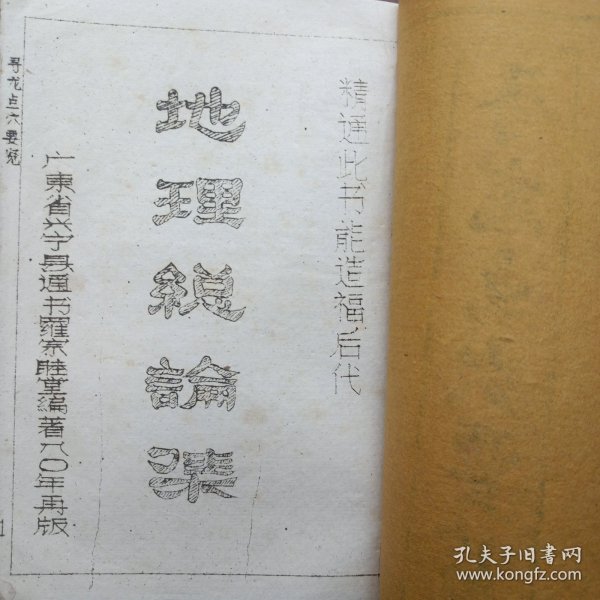 精通此书能造福后代
地理総論
广東省兴宁县通书羅家睦堂编著八〇年再版
寻龙点穴要
1
孔夫子旧書网
www.kongfz.com